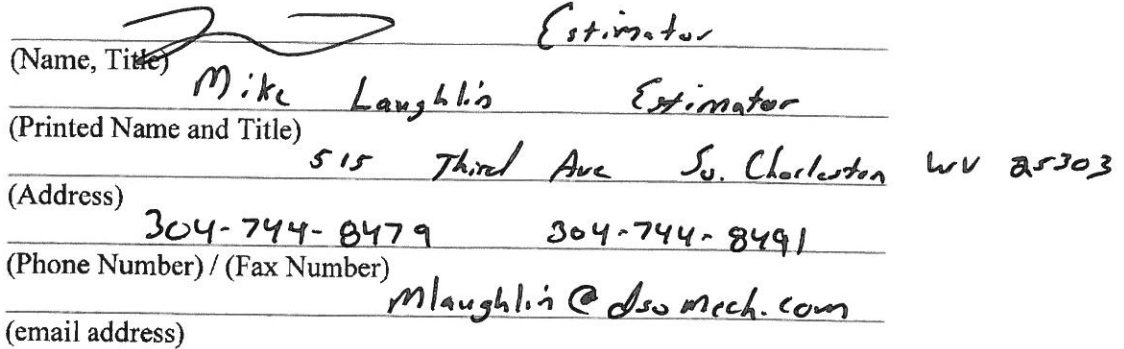 Estimator
(Name, Title)
Mike Laughlin Estimator
(Printed Name and Title)
515 Third Ave So. Charleston WV 25303
(Address)
304-744-8479 304-744-8491
(Phone Number) / (Fax Number)
Mlaughlin@dsomech.com
(email address)